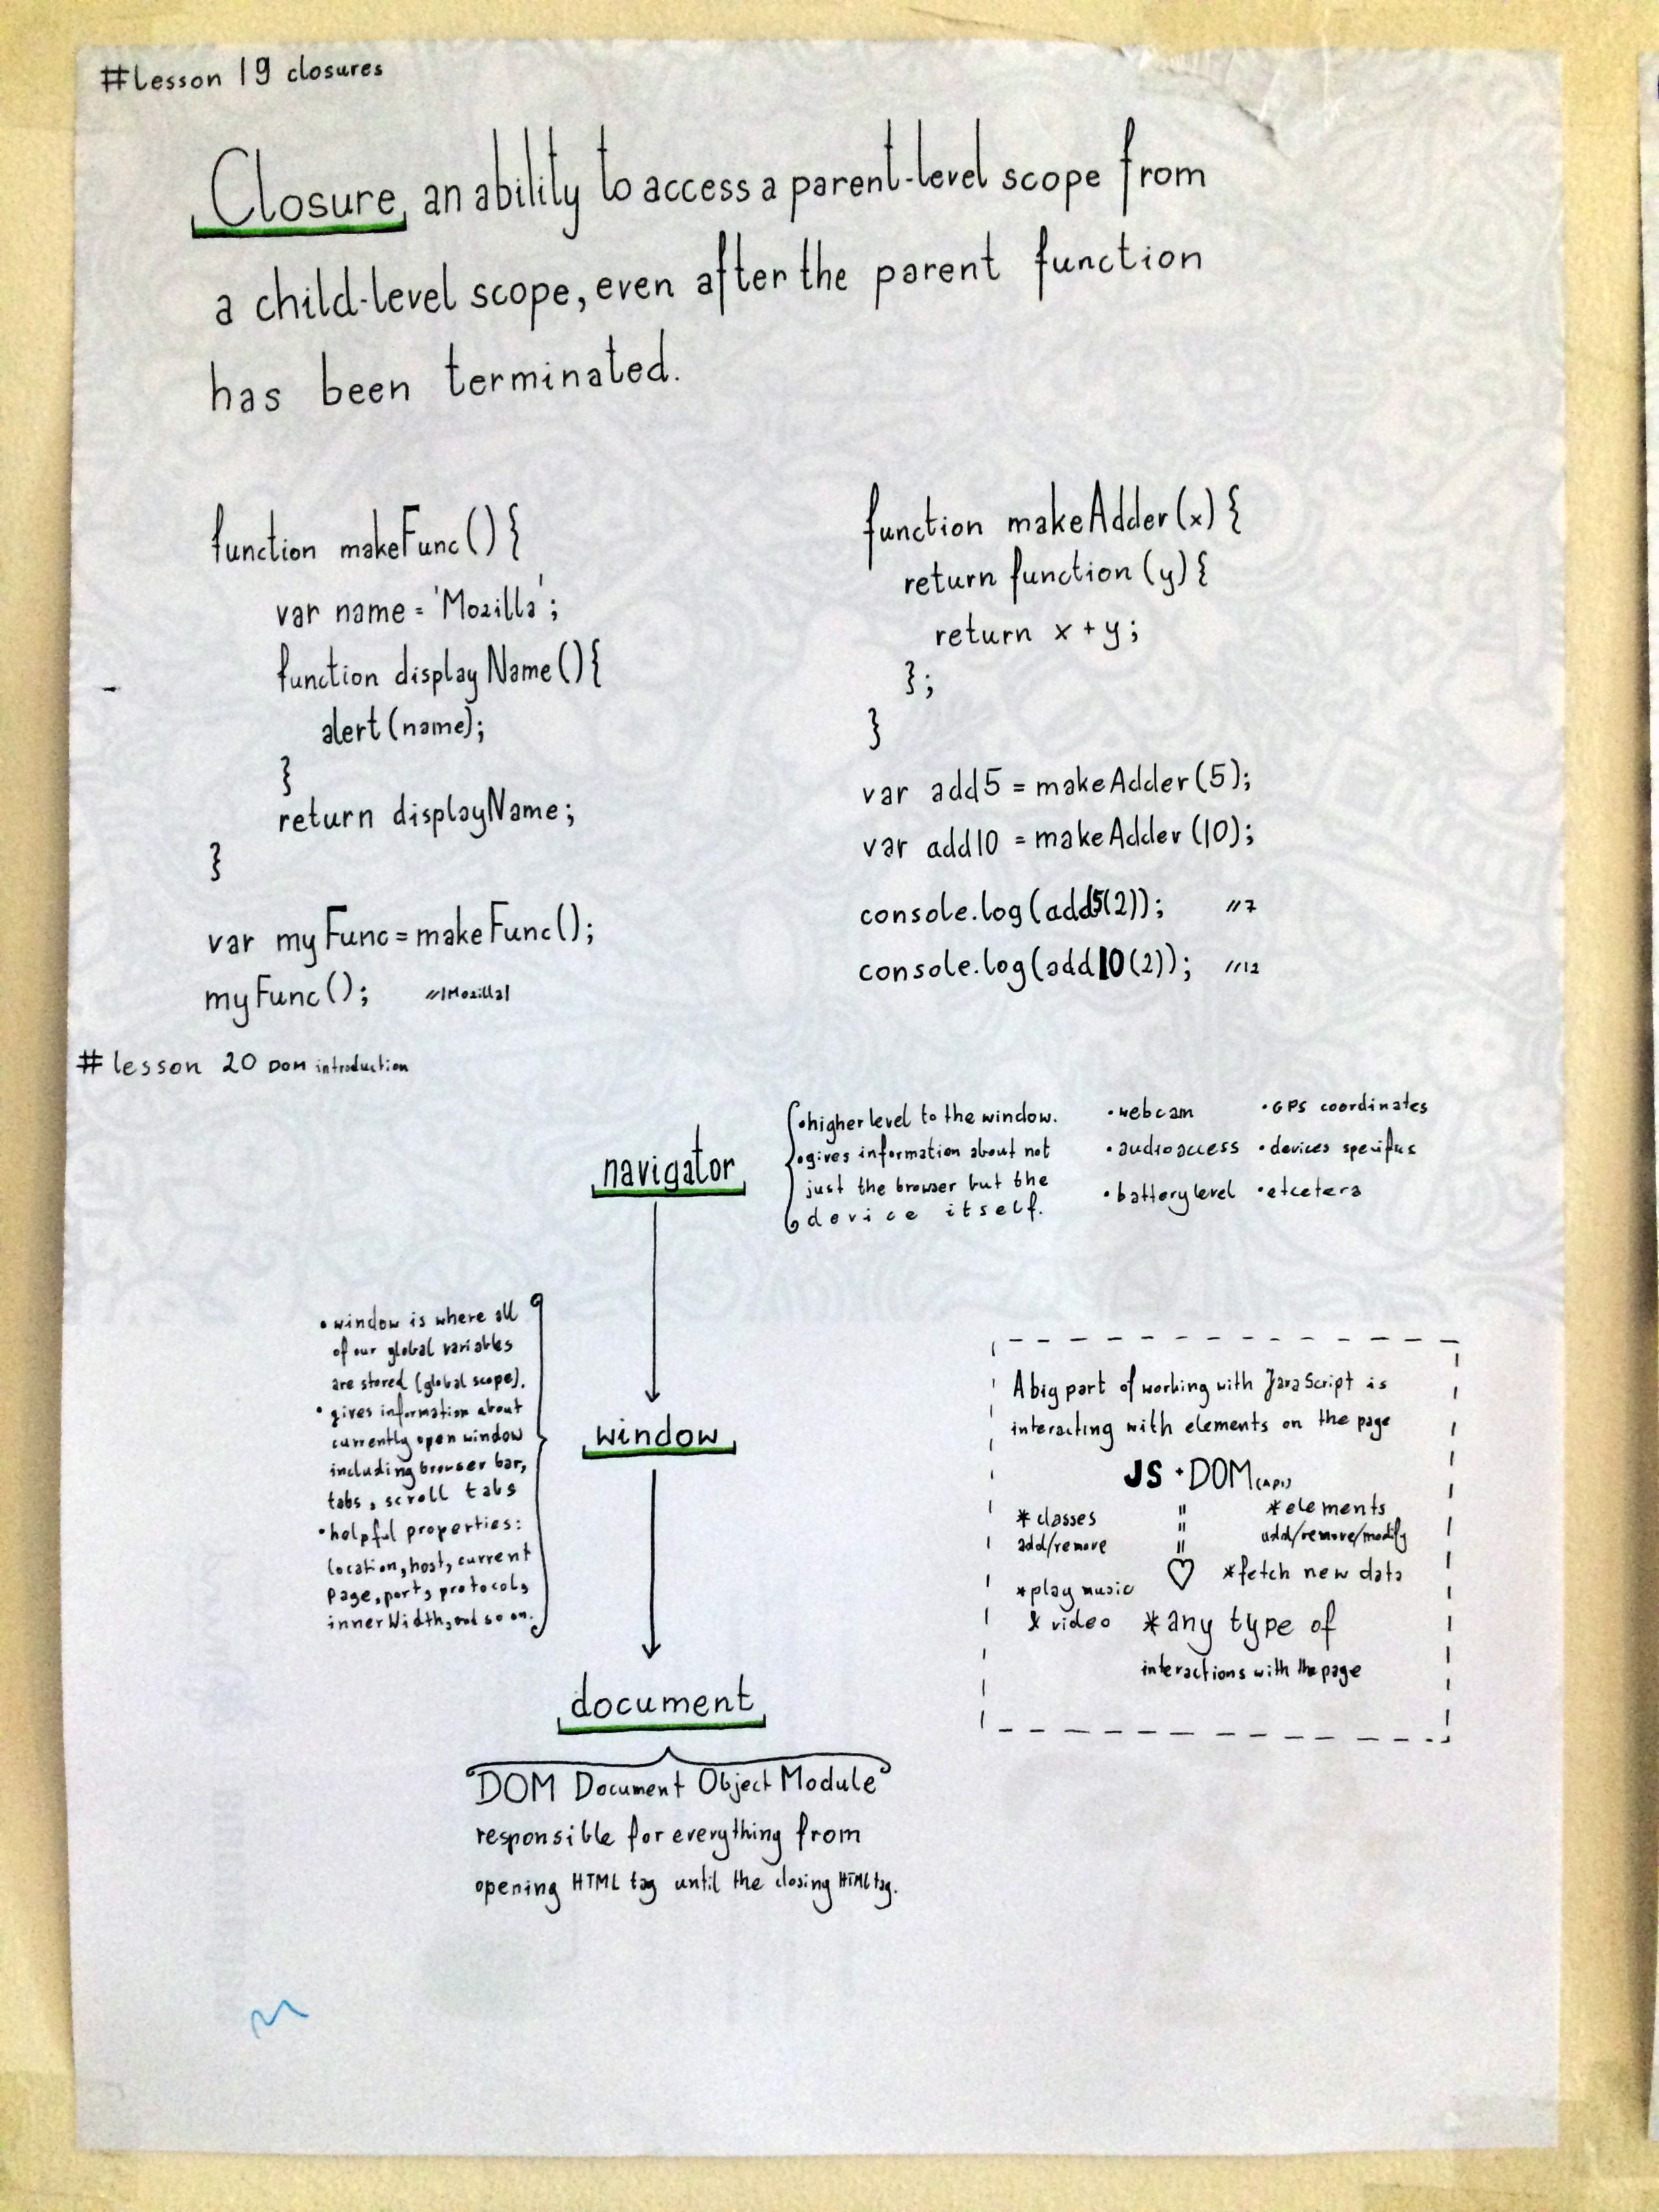 #lesson 19 closures
Closure, an ability to access a parent-level scope from
a child-level scope, even after the parent function
has been terminated.
function makeFunc() {
var name = 'Mozilla';
function displayName() {
alert(name);
}
return displayName;
}
var myFunc = makeFunc();
myFunc(); //|Mozilla|
function makeAdder(x) {
return function (y) {
return x + y;
};
}
var add5 = makeAdder(5);
var add10 = makeAdder(10);
console.log(add5(2)); //7
console.log(add10(2)); //12
# lesson 20 DOM introduction
navigator
• higher level to the window.
• gives information about not
just the browser but the
device itself.
• webcam • GPS coordinates
• audio access • devices specifics
• battery level • etcetera
• window is where all
of our global variables
are stored (global scope).
• gives information about
currently open window
including browser bar,
tabs, scroll tabs
• helpful properties:
location, host, current
page, port, protocols,
innerWidth, and so on.
window
document
DOM Document Object Module
responsible for everything from
opening HTML tag until the closing HTML tag.
A big part of working with JavaScript is
interacting with elements on the page
JS + DOM (API)
* classes
add/remove
* play music
& video
* elements
add/remove/modify
* fetch new data
* any type of
interactions with the page